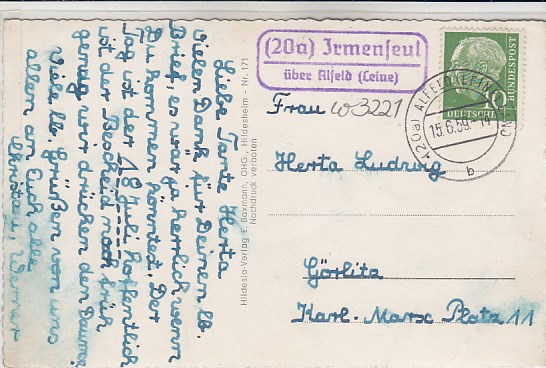 Liebe Tante Herta
Vielen Dank für Deinen lb.
Brief, es wär ja herrlich wenn
Du kommen könntest. Der
Tag ist der 18. Juli hoffentlich
ist der Bescheid noch früh
genug wir drücken den Daumen.
Viele lb. Grüßen von uns
allen an Euch alle
Christa u. Werner
Hildesia-Verlag E. Boxmann, OHG., Hildesheim - Nr. 171
Nachdruck verboten
(20a) Irmenseul
über Alfeld (Leine)
DEUTSCHE BUNDESPOST
10
(20a) ALFELD (LEINE)
15.6.59.-17
b
Frau w3221
Herta Ludwig
Görlitz
Karl-Marx Platz 11